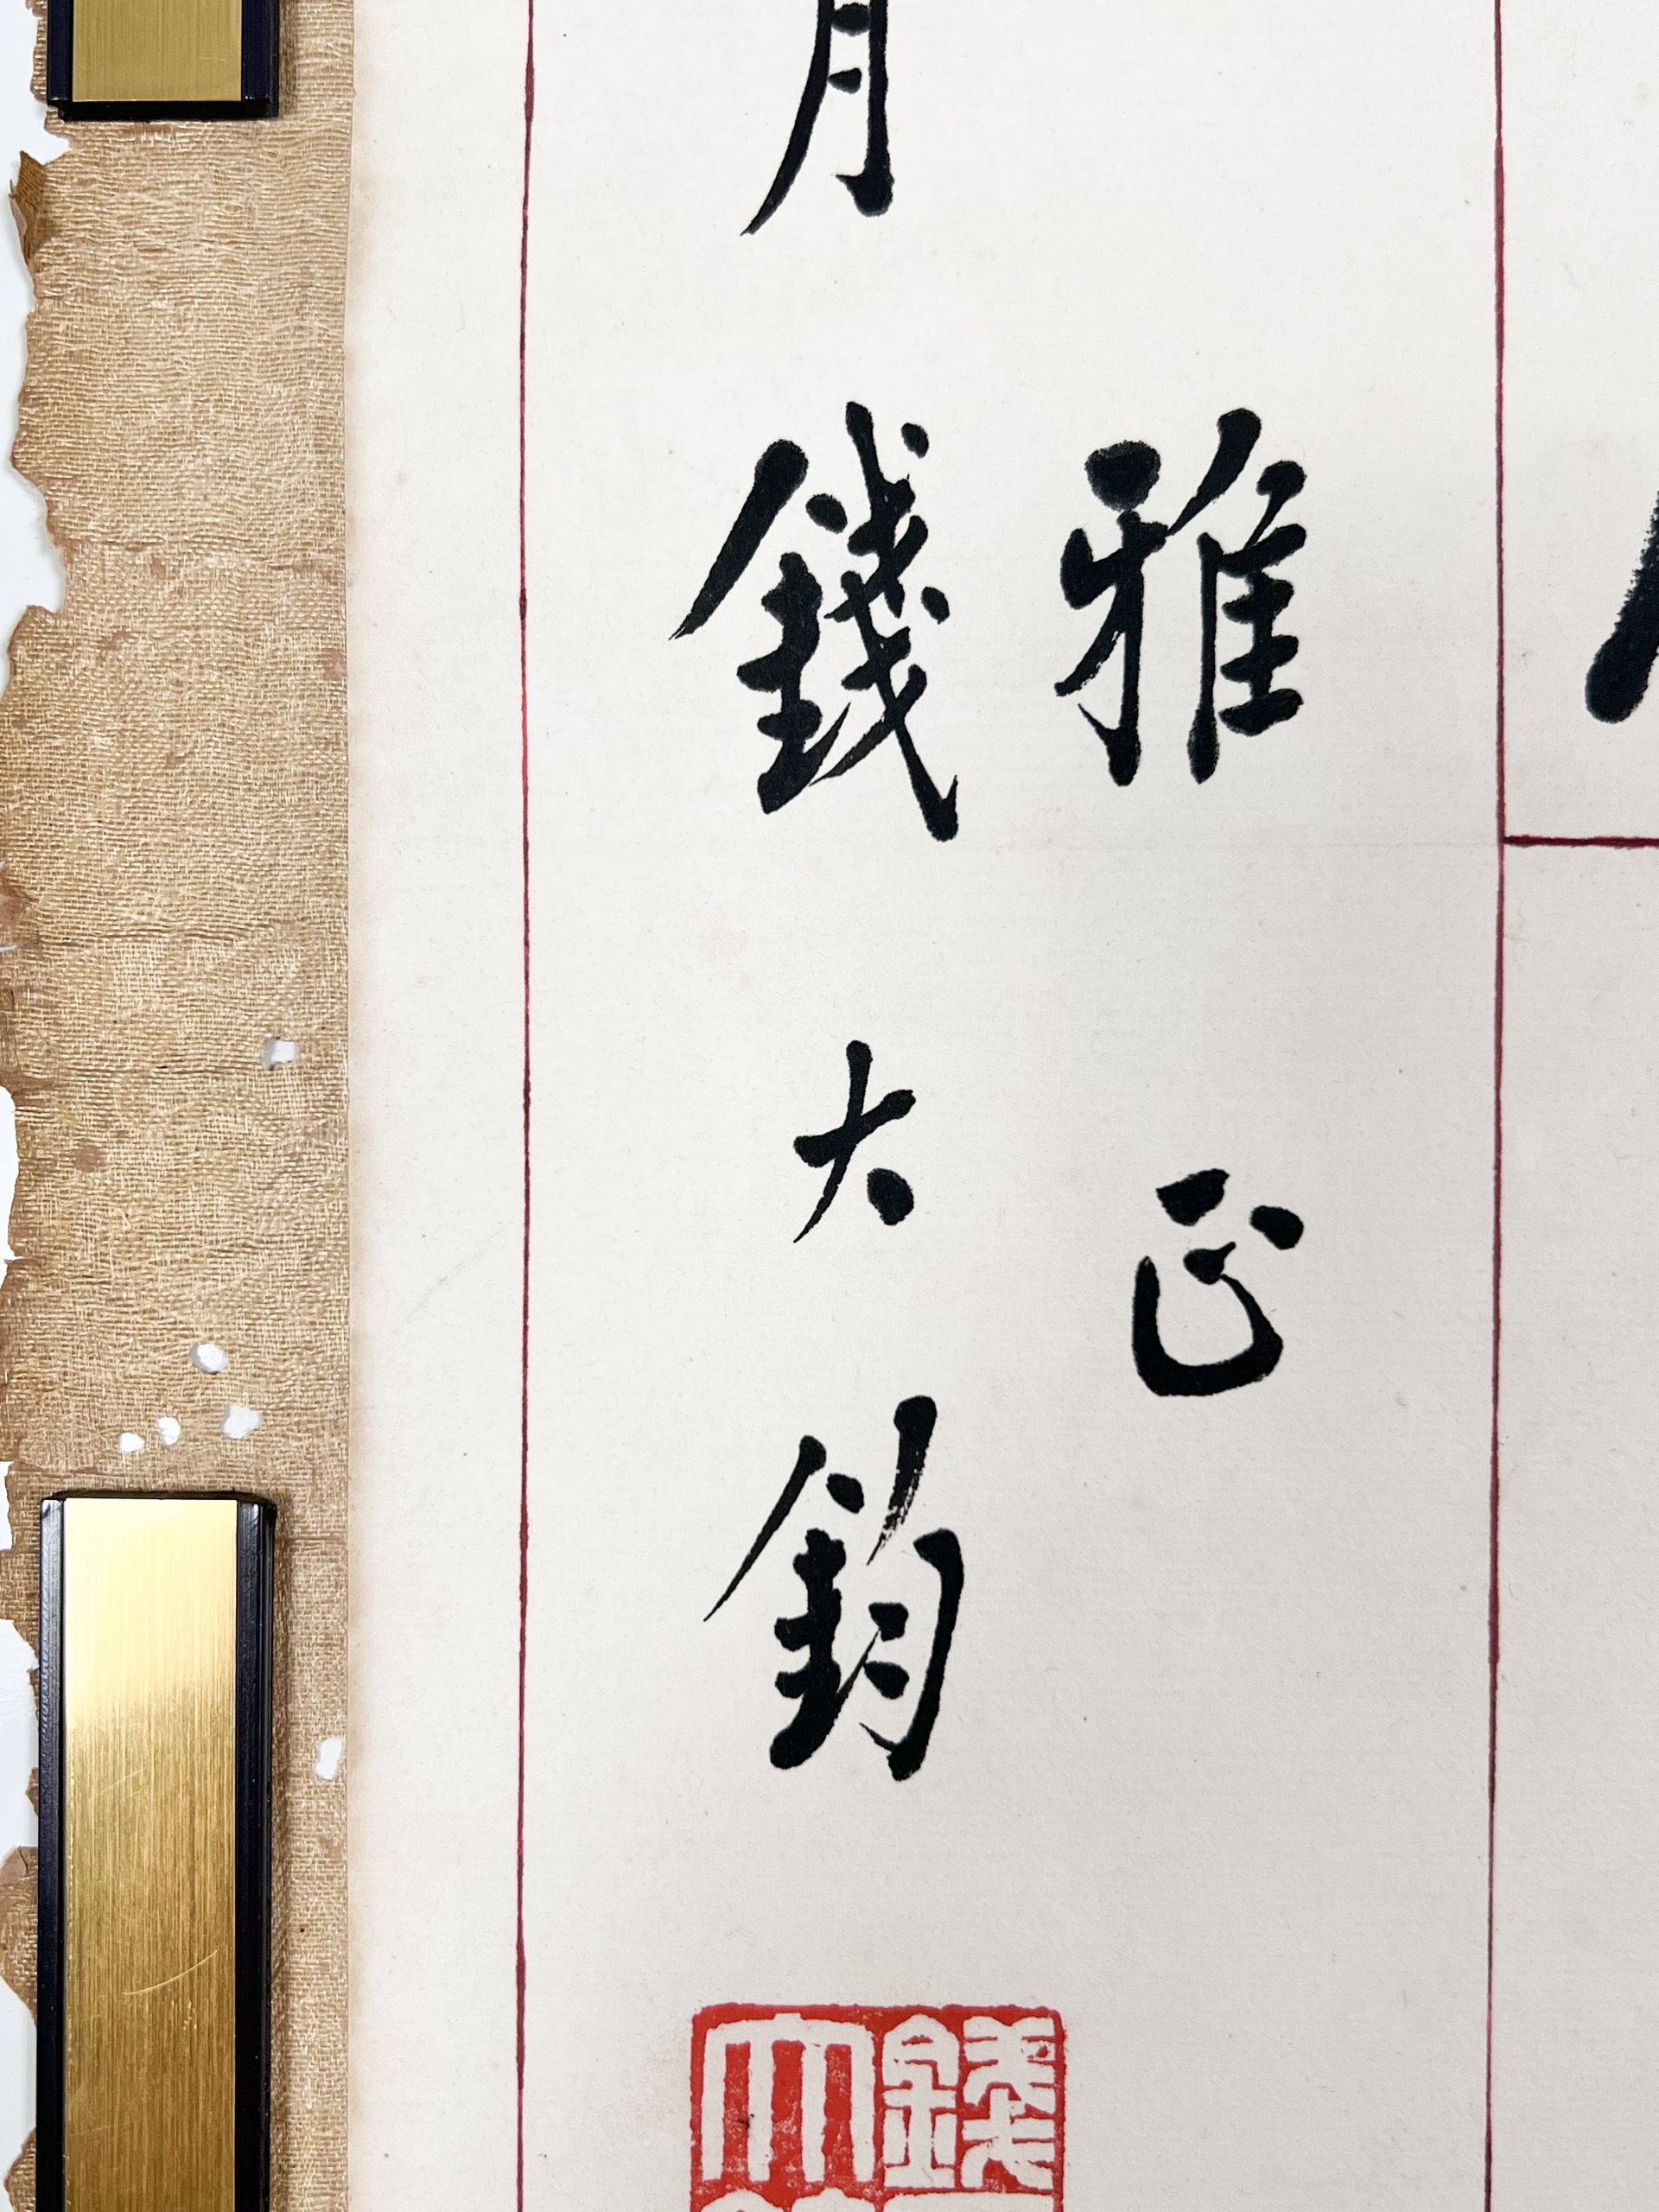 雅正
月錢大鈞
錢大